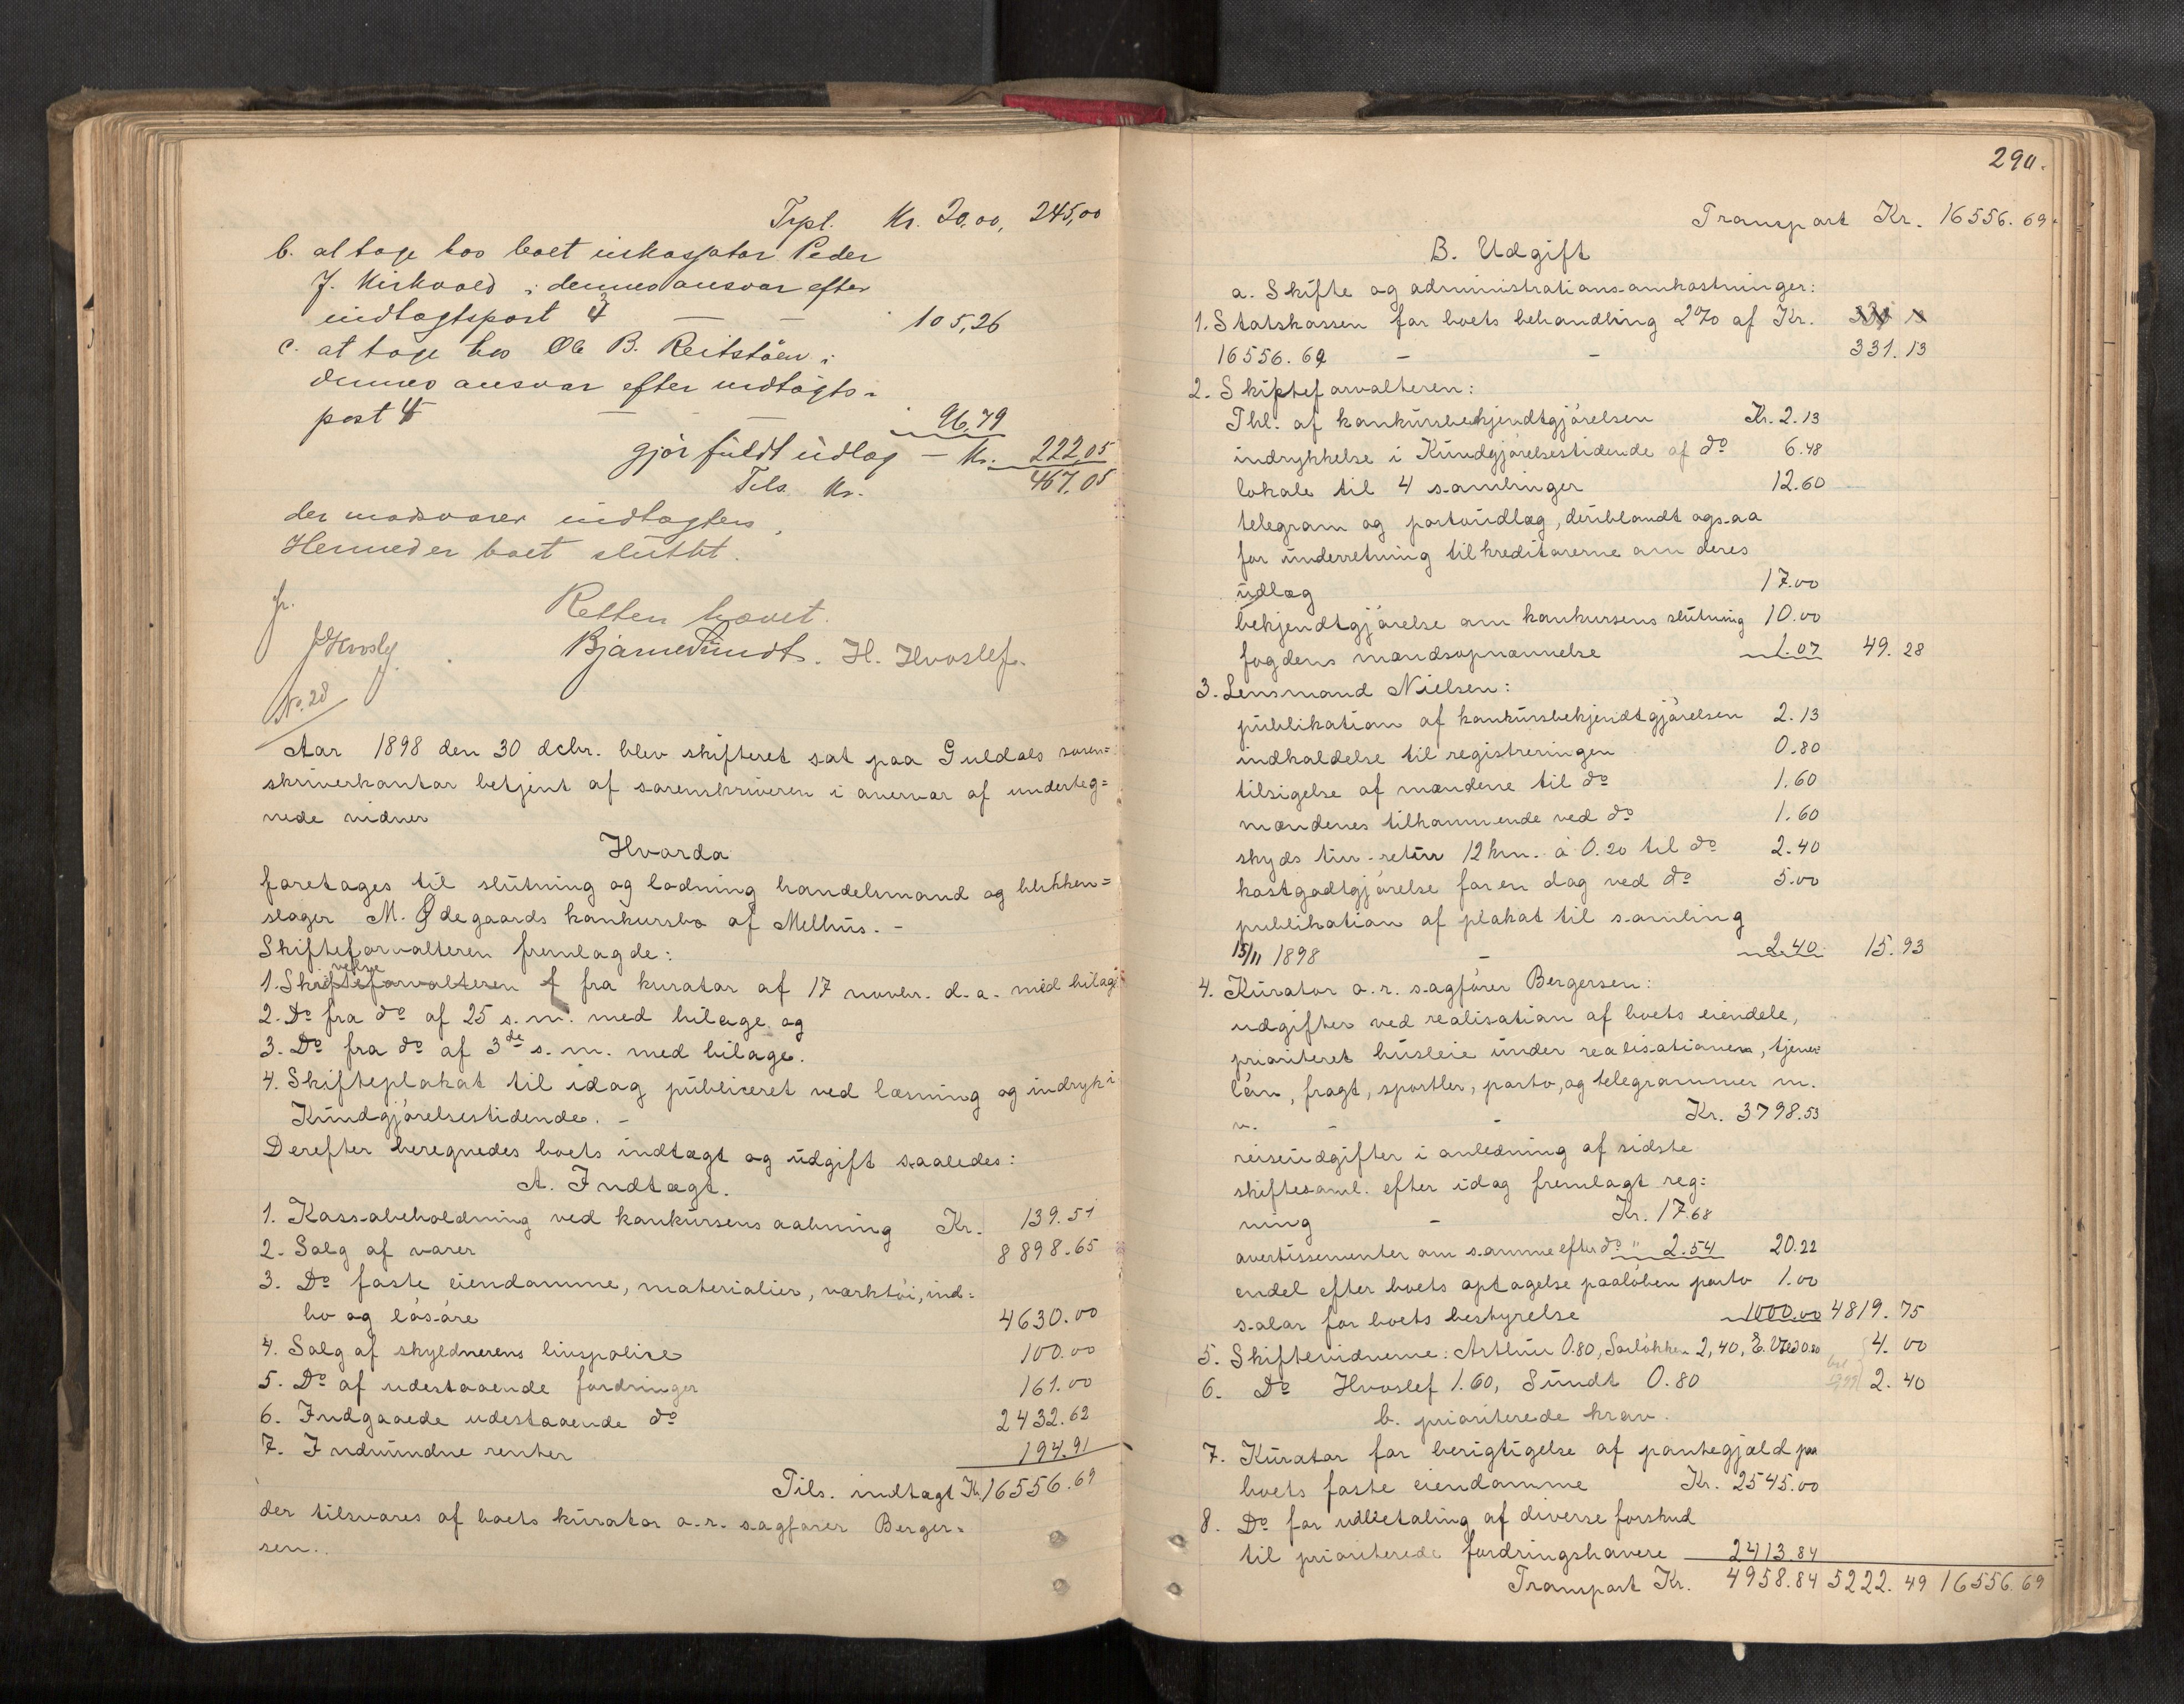 Trpt. Kr. 20,00, 245,00
b. at tage hos boet inkassator Peder
J. Kirkvold i dennes ansvar efter
indtægtspost 3 — — 105,26
c. at tage hos Ole B. Reitstøen i
dennes ansvar efter indtægts-
post 4 — — 96,79
gjør fuldt udlæg — Kr. 222,05
Tils. Kr. 467,05
der modsvarer indtægten.
Hermed er boet sluttet.
Retten hævet.
Bjarne Sundt. H. Hvoslef.
No. 28
Aar 1898 den 30 dcbr. blev skifteret sat paa Guldals soren=
skriverkontor betjent af sorenskriveren i overvær af underteg=
nede vidner
Hvorda
foretages til slutning og lodning handelsmand og blikken=
slager M. Ødegaards konkursbo af Melhus. -
Skifteforvalteren fremlagde:
1. Skrivelse fra kurator af 17 novbr. d. a. med bilag
2. Do fra do af 25 s. m. med bilage og
3. Do fra do af 3de s. m. med bilage.
4. Skifteplakat til idag publiceret ved læsning og indryk i
Kundgjørelsestidende. -
Derefter beregnedes boets indtægt og udgift saaledes:
A. Indtægt.
1. Kassabeholdning ved konkursens aabning Kr. 139.51
2. Salg af varer 8898.65
3. Do faste eiendomme, materialier, værktøi, ind=
bo og løsøre 4630.00
4. Salg af skyldnerens livspolice 100.00
5. Do af udestaaende fordringer 161.00
6. Indgaaede udestaaende do 2432.62
7. Indvundne renter 194.91
Tils. indtægt Kr. 16556.69
der tilsvares af boets kurator o.r. sagfører Berger=
sen.
290.
Transport Kr. 16556.69.
B. Udgift
a. Skifte og administrationsomkostninger:
1. Statskassen for boets behandling 2% af Kr.
16556.69 - - 331.13
2. Skifteforvalteren:
Thl. af konkursbekjendtgjørelsen Kr. 2.13
indrykkelse i Kundgjørelsestidende af do 6.48
lokale til 4 samlinger 12.60
telegram og portoudlæg, deriblandt ogsaa
for underretning til kreditorerne om deres
udlæg 17.00
bekjendtgjørelse om konkursens slutning 10.00
fogdens mændsopnævnelse 1.07 49.28
3. Lensmand Nielsen:
publikation af konkursbekjendtgjørelsen 2.13
indkaldelse til registreringen 0.80
tilsigelse af mændene til do 1.60
mændenes tilkommende ved do 1.60
skyds tur-retur 12 km. à 0.20 til do 2.40
kostgodtgjørelse for en dag ved do 5.00
publikation af plakat til samling
15/11 1898 - 2.40 15.93
4. Kurator o.r. sagfører Bergersen:
udgifter ved realisation af boets eiendele,
prioriteret husleie under realisationen, tjener=
løn, fragt, sportler, porto, og telegrammer m.
v. - - Kr. 3798.53
reiseudgifter i anledning af sidste
skiftesaml. efter idag fremlagt reg=
ning - Kr. 17.68
avertissementer om samme efter do " 2.54 20.22
endel efter boets optagelse paaløben porto 1.00
salær for boets bestyrelse 1000.00 4819.75
5. Skiftevidnerne: Arthur 0.80, Sørløkken 2,40, E. Vold 0.80 4.00
6. Do Hvoslef 1.60, Sundt 0.80 2.40
b. prioriterede krav.
7. Kurator for berigtigelse af pantegjæld paa
boets faste eiendomme Kr. 2545.00
8. Do for udbetaling af diverse forskud
til prioriterede fordringshavere 2413.84
Transport Kr. 4958.84 5222.49 16556.69